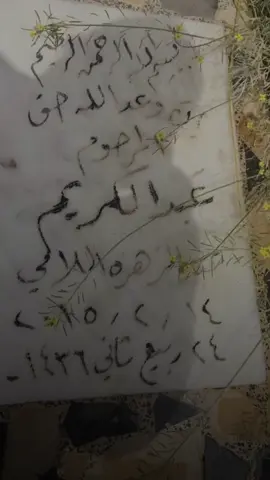 بسم الله الرحمن الرحيم
وعد الله حق
المرحوم
عبد الكريم
الزهره اللالي
١٤ / ٢ / ٢٠١٥
٢٤ ربيع ثاني ١٤٣٦ -